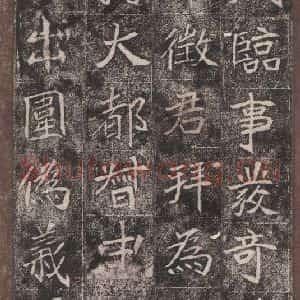 臨事發奇
徵君拜為
大都督
出圍偽義